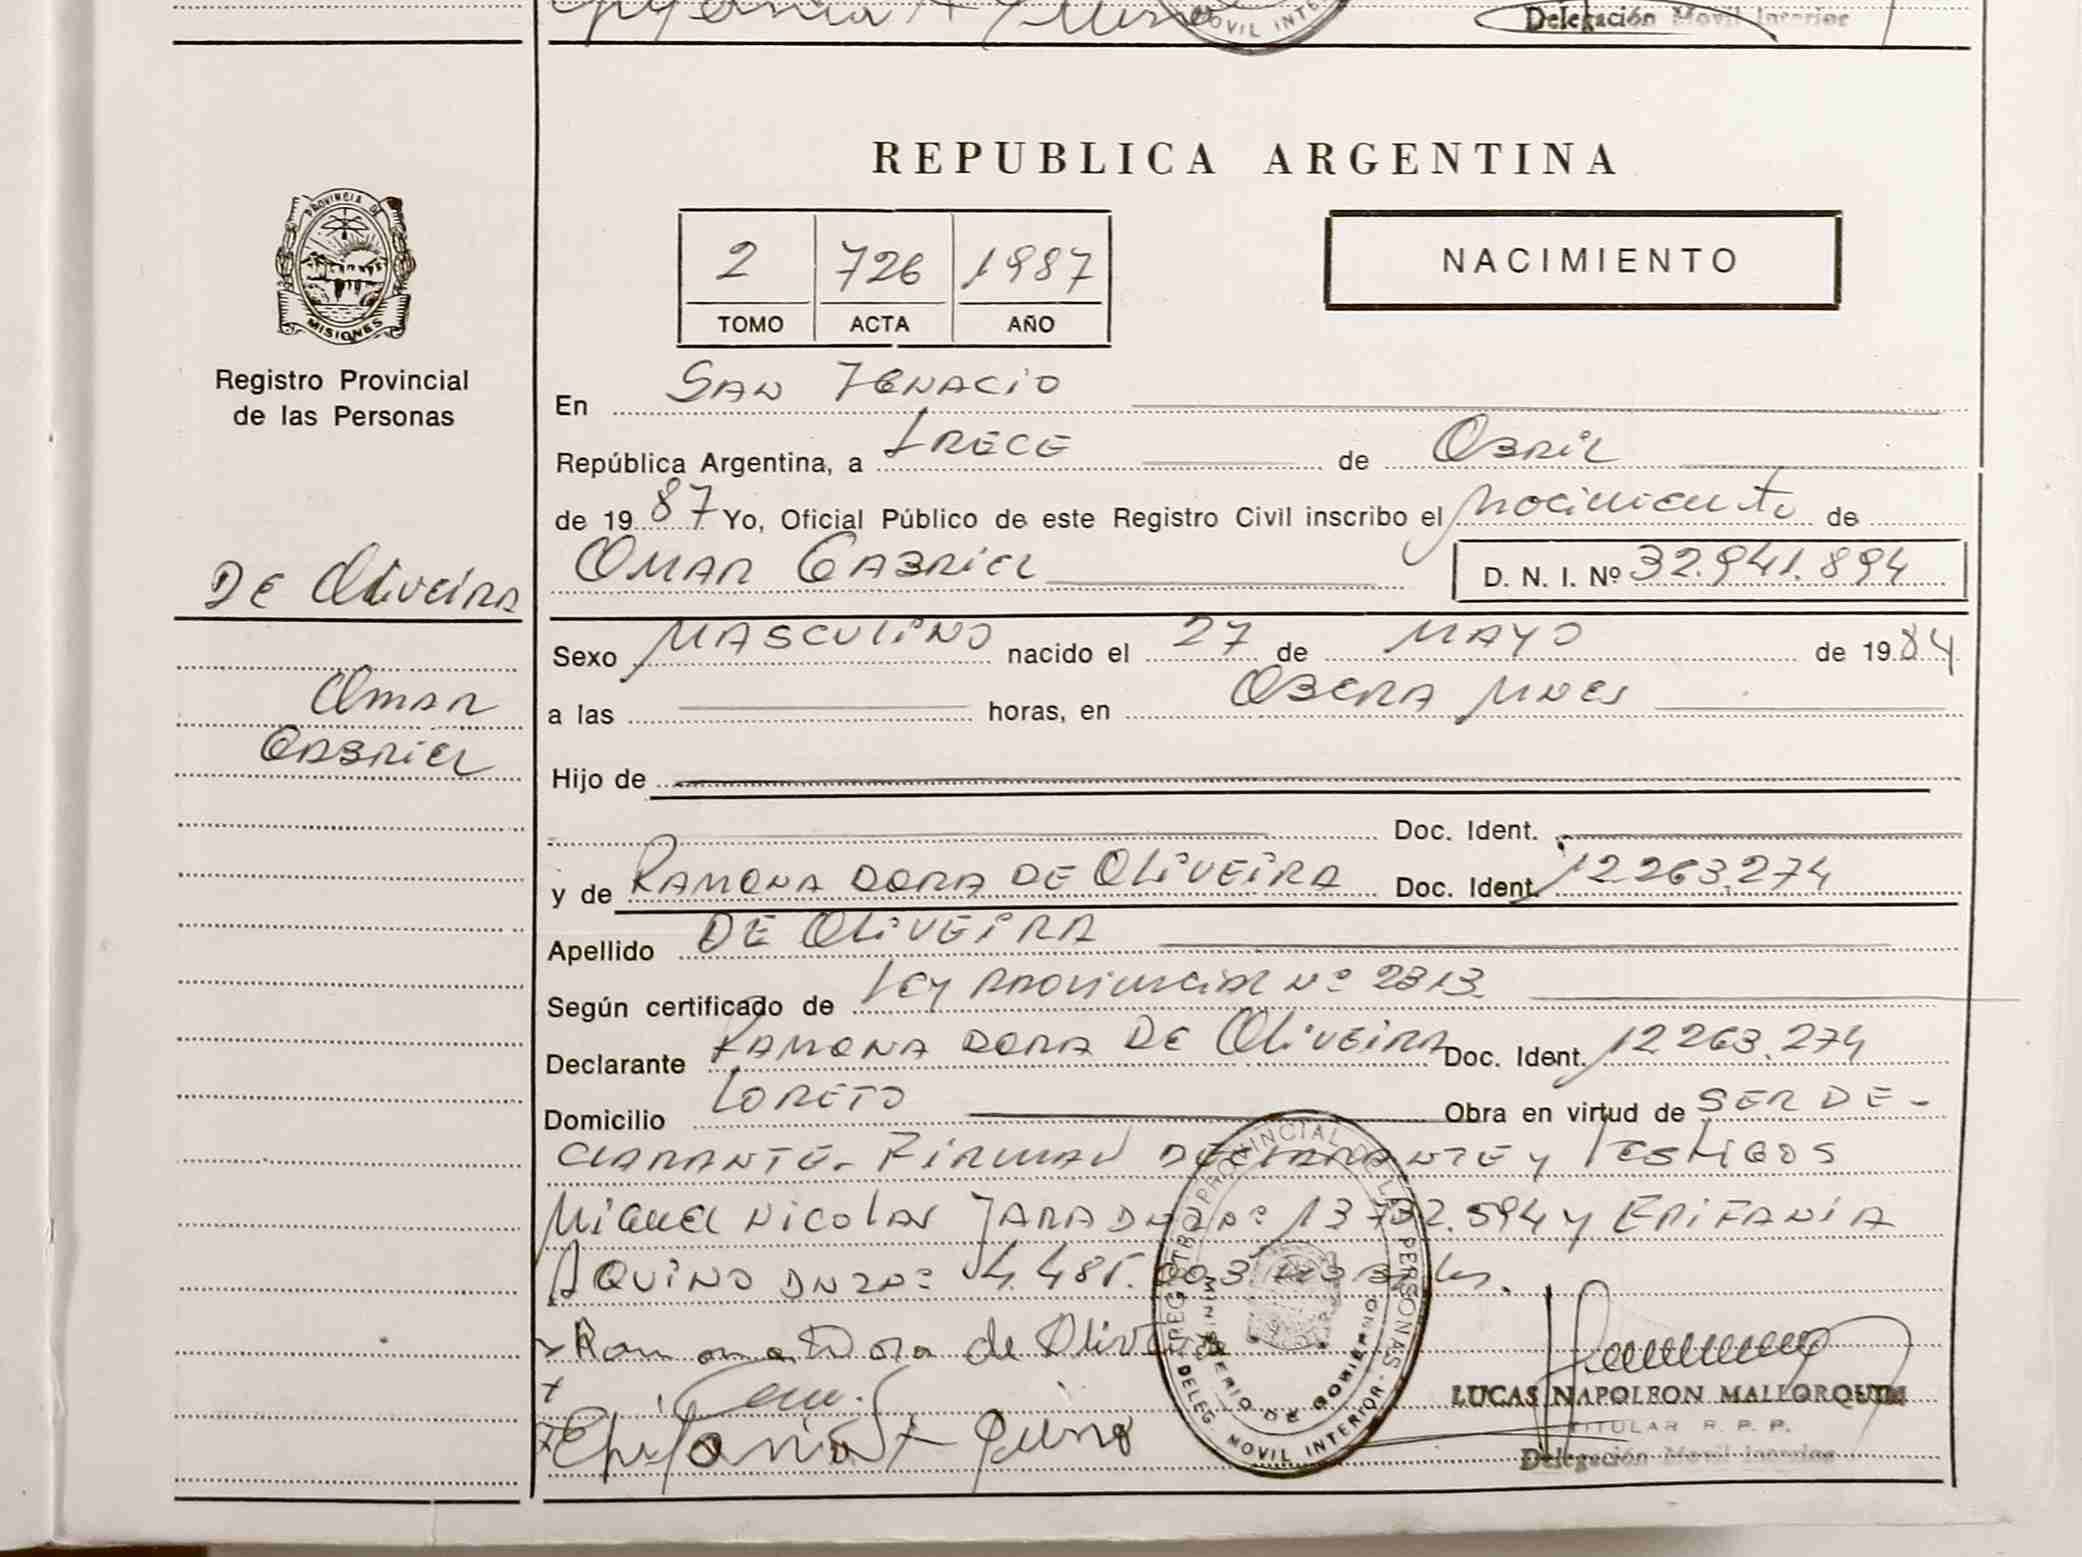 MOVIL INTER
Delegación Movil Interior
REPUBLICA ARGENTINA
PROVINCIA DE
MISIONES
Registro Provincial
de las Personas
2 726 1987
TOMO ACTA AÑO
NACIMIENTO
De Oliveira
Omar
Gabriel
En San Ignacio
República Argentina, a trece de Abril
de 1987 Yo, Oficial Público de este Registro Civil inscribo el nacimiento de
Omar Gabriel D. N. I. Nº 32.941.894
Sexo Masculino nacido el 27 de Mayo de 1984
a las horas, en Obera Mnes
Hijo de
Doc. Ident.
y de Ramona Dora De Oliveira Doc. Ident. 12263.274
Apellido De Oliveira
Según certificado de Ley Provincial Nº 2313
Declarante Ramona Dora De Oliveira Doc. Ident. 12263.274
Domicilio Loreto Obra en virtud de ser de-
clarante. Firman declarante y testigos
Miguel Nicolas Jara DNI Nº 13732.594 y Epifania
Aquino DNI Nº
Ramona Dora de Oliveira
Epifania Aquino
REGISTRO PROVINCIAL DE LAS PERSONAS
MINISTERIO DE GOBIERNO
DELEG. MOVIL INTERIOR
LUCAS NAPOLEON MALLORQUIN
TITULAR R. P. P.
Delegación Movil Interior